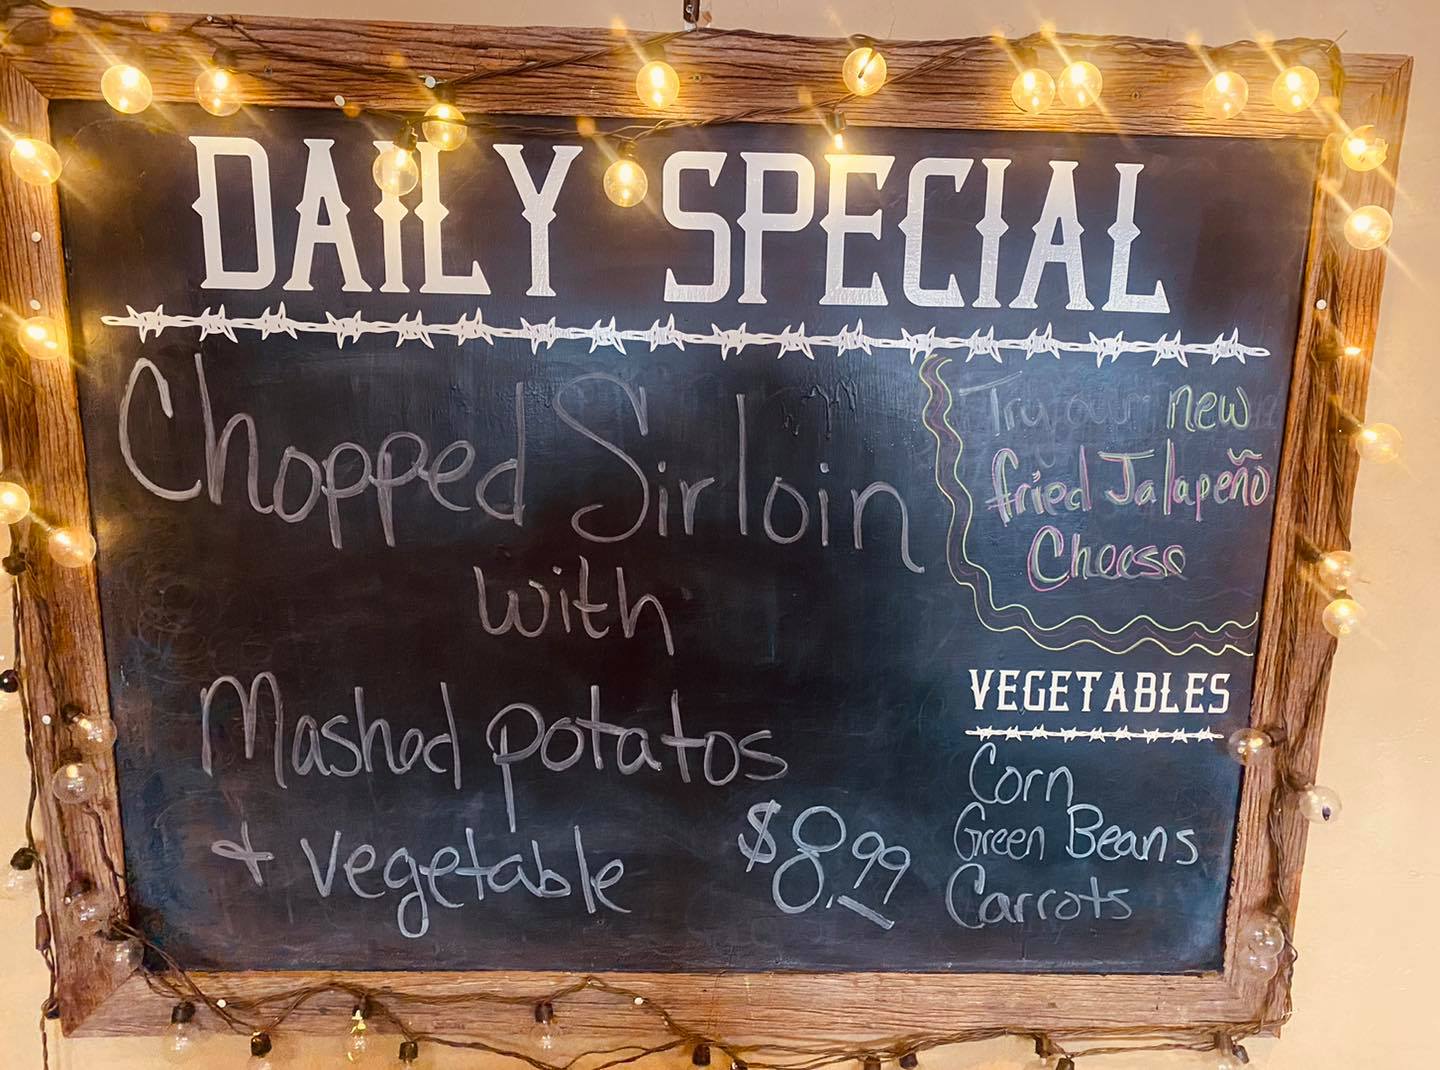 DAILY SPECIAL
Chopped Sirloin
with
Mashed potatos
+ vegetable
$8.99
Try our new
fried Jalapeño
Cheese
VEGETABLES
Corn
Green Beans
Carrots